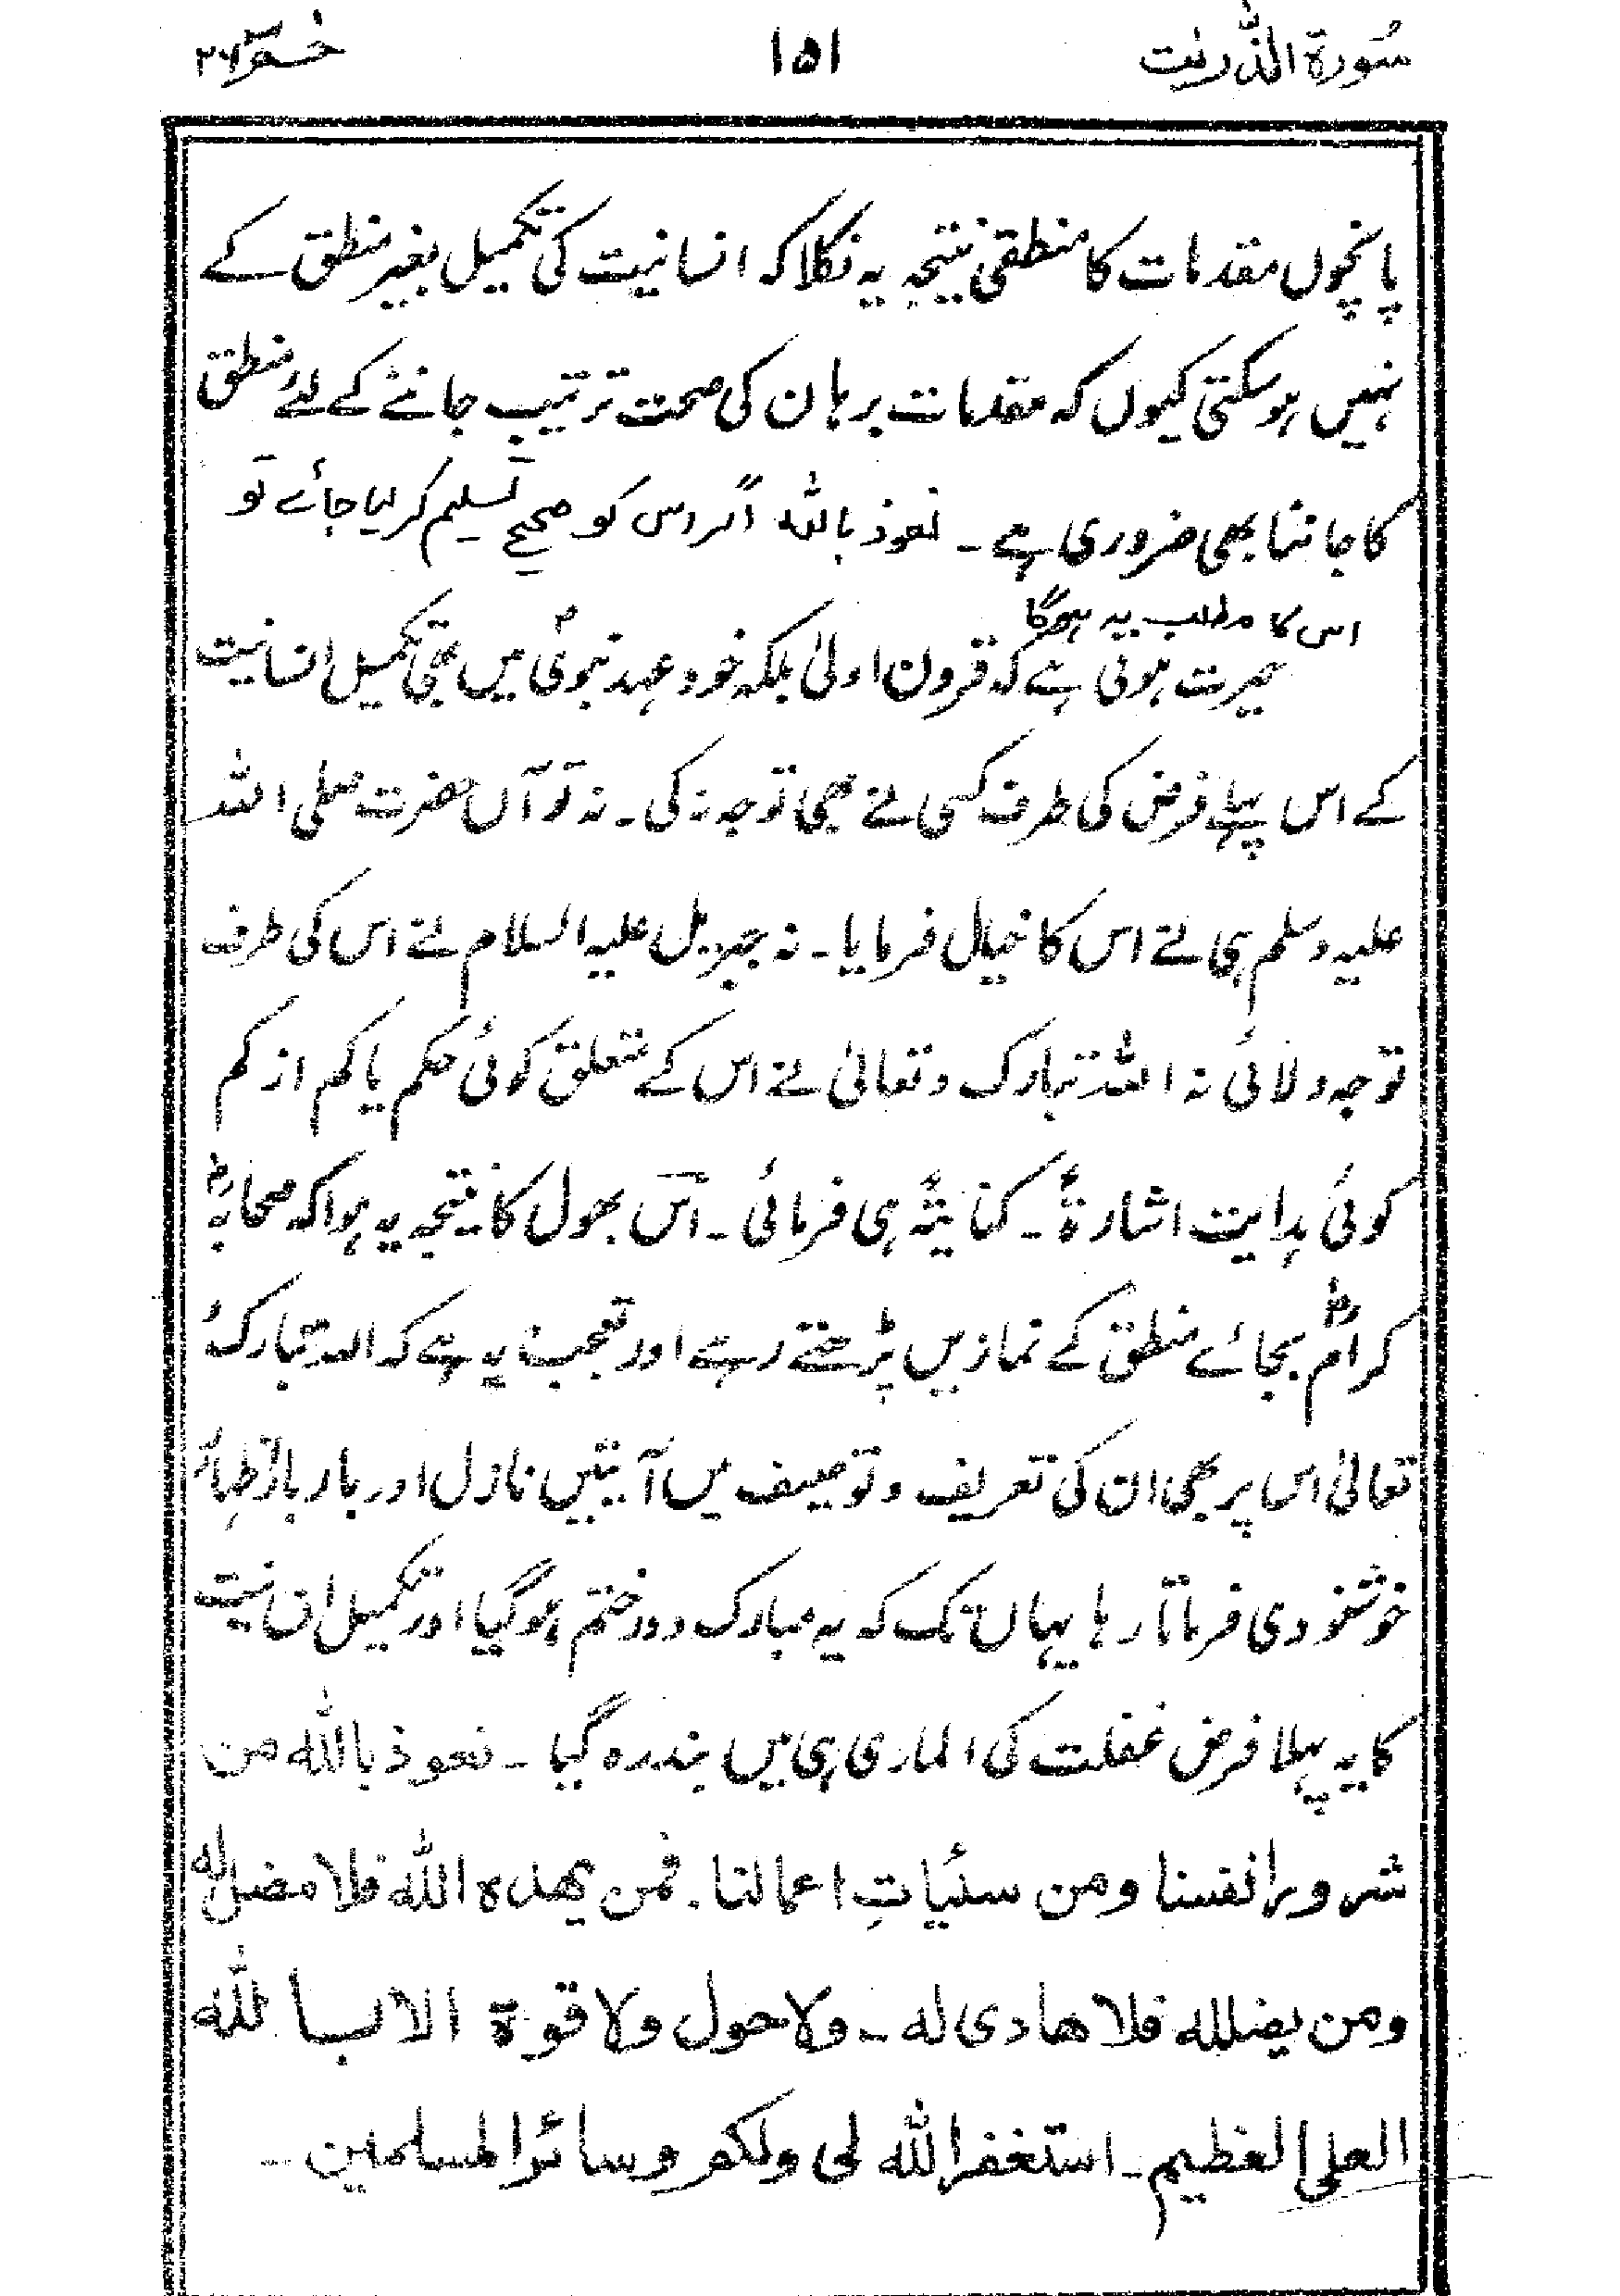 سُورة الذّٰریٰت ۱۵۱ حٰمٓ ۲۶
پانچوں مقدمات کا منطقی نتیجہ یہ نکلا کہ انسانیت کی تکمیل بغیر منطق کے
نہیں ہوسکتی کیوں کہ مقدمات برہان کی صحت ترتیب جاننے کے لئے منطق
کا جاننا بھی ضروری ہے۔ نعوذ باللہ اگر اس کو صحیح تسلیم کر لیا جائے تو
اس کا مطلب یہ ہوگا
حیرت ہوتی ہے کہ قرون اولیٰ بلکہ خود عہد نبویؐ میں بھی تکمیل انسانیت
کے اس پہلے فرض کی طرف کسی نے بھی توجہ نہ کی۔ نہ تو آں حضرت صلی اللہ
علیہ وسلم ہی نے اس کا خیال فرمایا۔ نہ جبریل علیہ السلام نے اس کی طرف
توجہ دلائی نہ اللہ تبارک و تعالیٰ نے اس کے متعلق کوئی حکم یا کم از کم
کوئی ہدایت اشارۃً۔ کنایتہً ہی فرمائی۔ اس بھول کا نتیجہ یہ ہوا کہ صحابہؓ
کرامؓ بجائے منطق کے نمازیں پڑھتے رہے اور تعجب یہ ہے کہ اللہ تبارک و
تعالیٰ اس پر بھی ان کی تعریف و توصیف میں آیتیں نازل اور بار بار اظہار
خوشنودی فرماتا رہا یہاں تک کہ یہ مبارک دور ختم ہوگیا اور تکمیل انسانیت
کا یہ پہلا فرض غفلت کی الماری ہی میں بند رہ گیا۔ نعوذ باللہ من
شرور انفسنا ومن سئیاتِ اعمالنا۔ فمن یھدہ اللہ فلا مضل لہ
ومن یضللہ فلا ھادی لہ۔ ولا حول ولا قوۃ الا با للہ
العلی العظیم۔ استغفر اللہ لی ولکم وسائر المسلمین۔